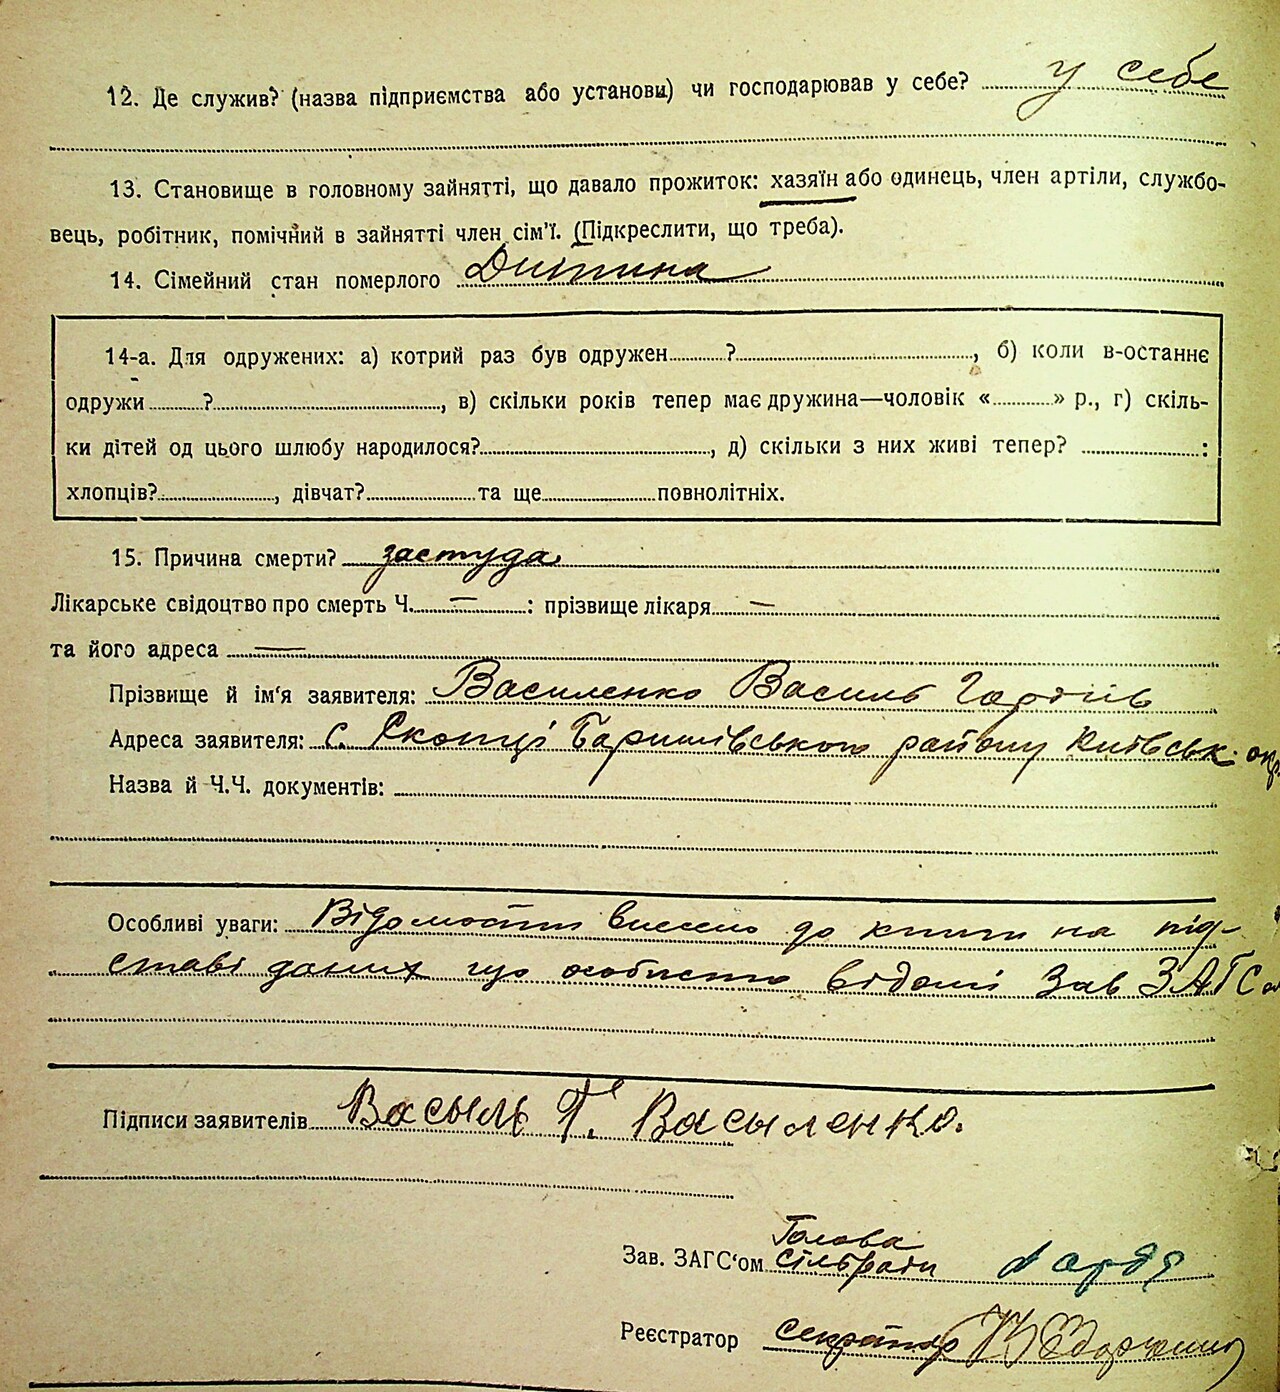 12. Де служив? (назва підприємства або установи) чи господарював у себе? у себе
13. Становище в головному зайнятті, що давало прожиток: хазяїн або одинець, член артіли, службо-
вець, робітник, помічний в зайнятті член сім'ї. (Підкреслити, що треба).
14. Сімейний стан померлого Дитина
14-а. Для одружених: а) котрий раз був одружен ? , б) коли в-останнє
одружи ? , в) скільки років тепер має дружина—чоловік « » р., г) скіль-
ки дітей од цього шлюбу народилося? , д) скільки з них живі тепер? :
хлопців? , дівчат? та ще повнолітніх.
15. Причина смерти? застуда
Лікарське свідоцтво про смерть Ч. — : прізвище лікаря —
та його адреса —
Прізвище й ім'я заявителя: Василенко Василь
Адреса заявителя: с. Скопці Баришівського району Київськ. окр.
Назва й Ч.Ч. документів:
Особливі уваги: Відомости внесено до книги на під-
ставі даних що особисто відомі Зав ЗАГСом
Підписи заявителів Васыль Г. Васыленко.
Голова
Зав. ЗАГС'ом сільради
Реєстратор секретар